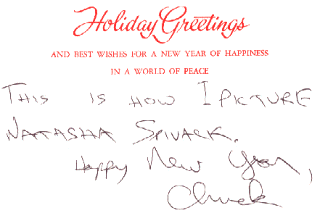 Holiday Greetings
AND BEST WISHES FOR A NEW YEAR OF HAPPINESS
IN A WORLD OF PEACE
THIS IS HOW I PICTURE
NATASHA SPIVACK.
Happy New Year,
Chuck